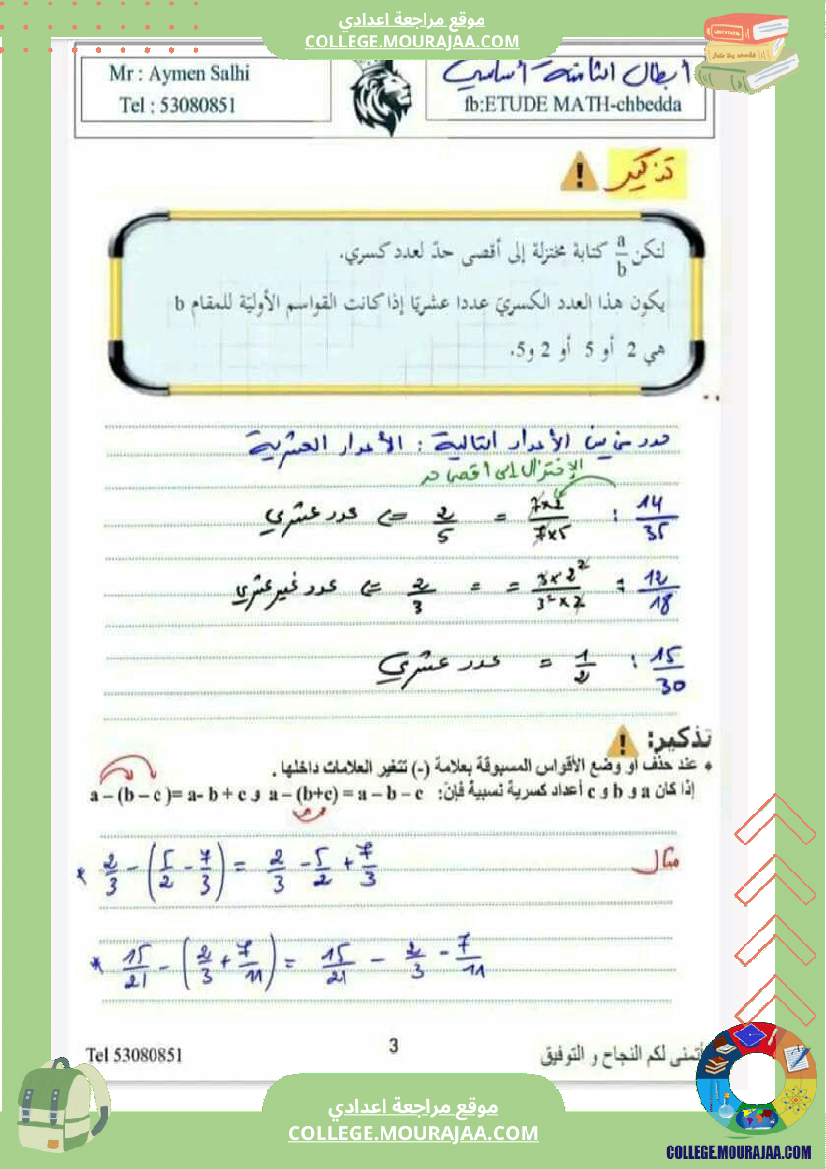 موقع مراجعة اعدادي
COLLEGE.MOURAJAA.COM
Mr : Aymen Salhi
Tel : 53080851
أبطال الثامنة أساسي
fb:ETUDE MATH-chbedda
تذكير
لتكن a/b كتابة مختزلة إلى أقصى حدّ لعدد كسري.
يكون هذا العدد الكسريّ عددا عشريّا إذا كانت القواسم الأوليّة للمقام b
هي 2 أو 5 أو 2 و5.
حدد من بين الأعداد التالية : الأعداد العشرية
الإختزال إلى أقصى حد
14/35 : 7×2/7×5 = 2/5 => عدد عشري
12/18 : 3×2²/3²×2 = = 2/3 => عدد غير عشري
15/30 : 1/2 = عدد عشري
تذكير:
* عند حذف أو وضع الأقواس المسبوقة بعلامة (-) تتغير العلامات داخلها .
إذا كان a و b و c أعداد كسرية نسبية فإن: a – (b+c) = a – b – c و a – (b – c )= a- b + c
مثال
* 2/3 - (5/2 - 7/3) = 2/3 - 5/2 + 7/3
* 15/21 - (2/3 + 7/11) = 15/21 - 2/3 - 7/11
Tel 53080851
3
أتمنى لكم النجاح و التوفيق
موقع مراجعة اعدادي
COLLEGE.MOURAJAA.COM
COLLEGE.MOURAJAA.COM